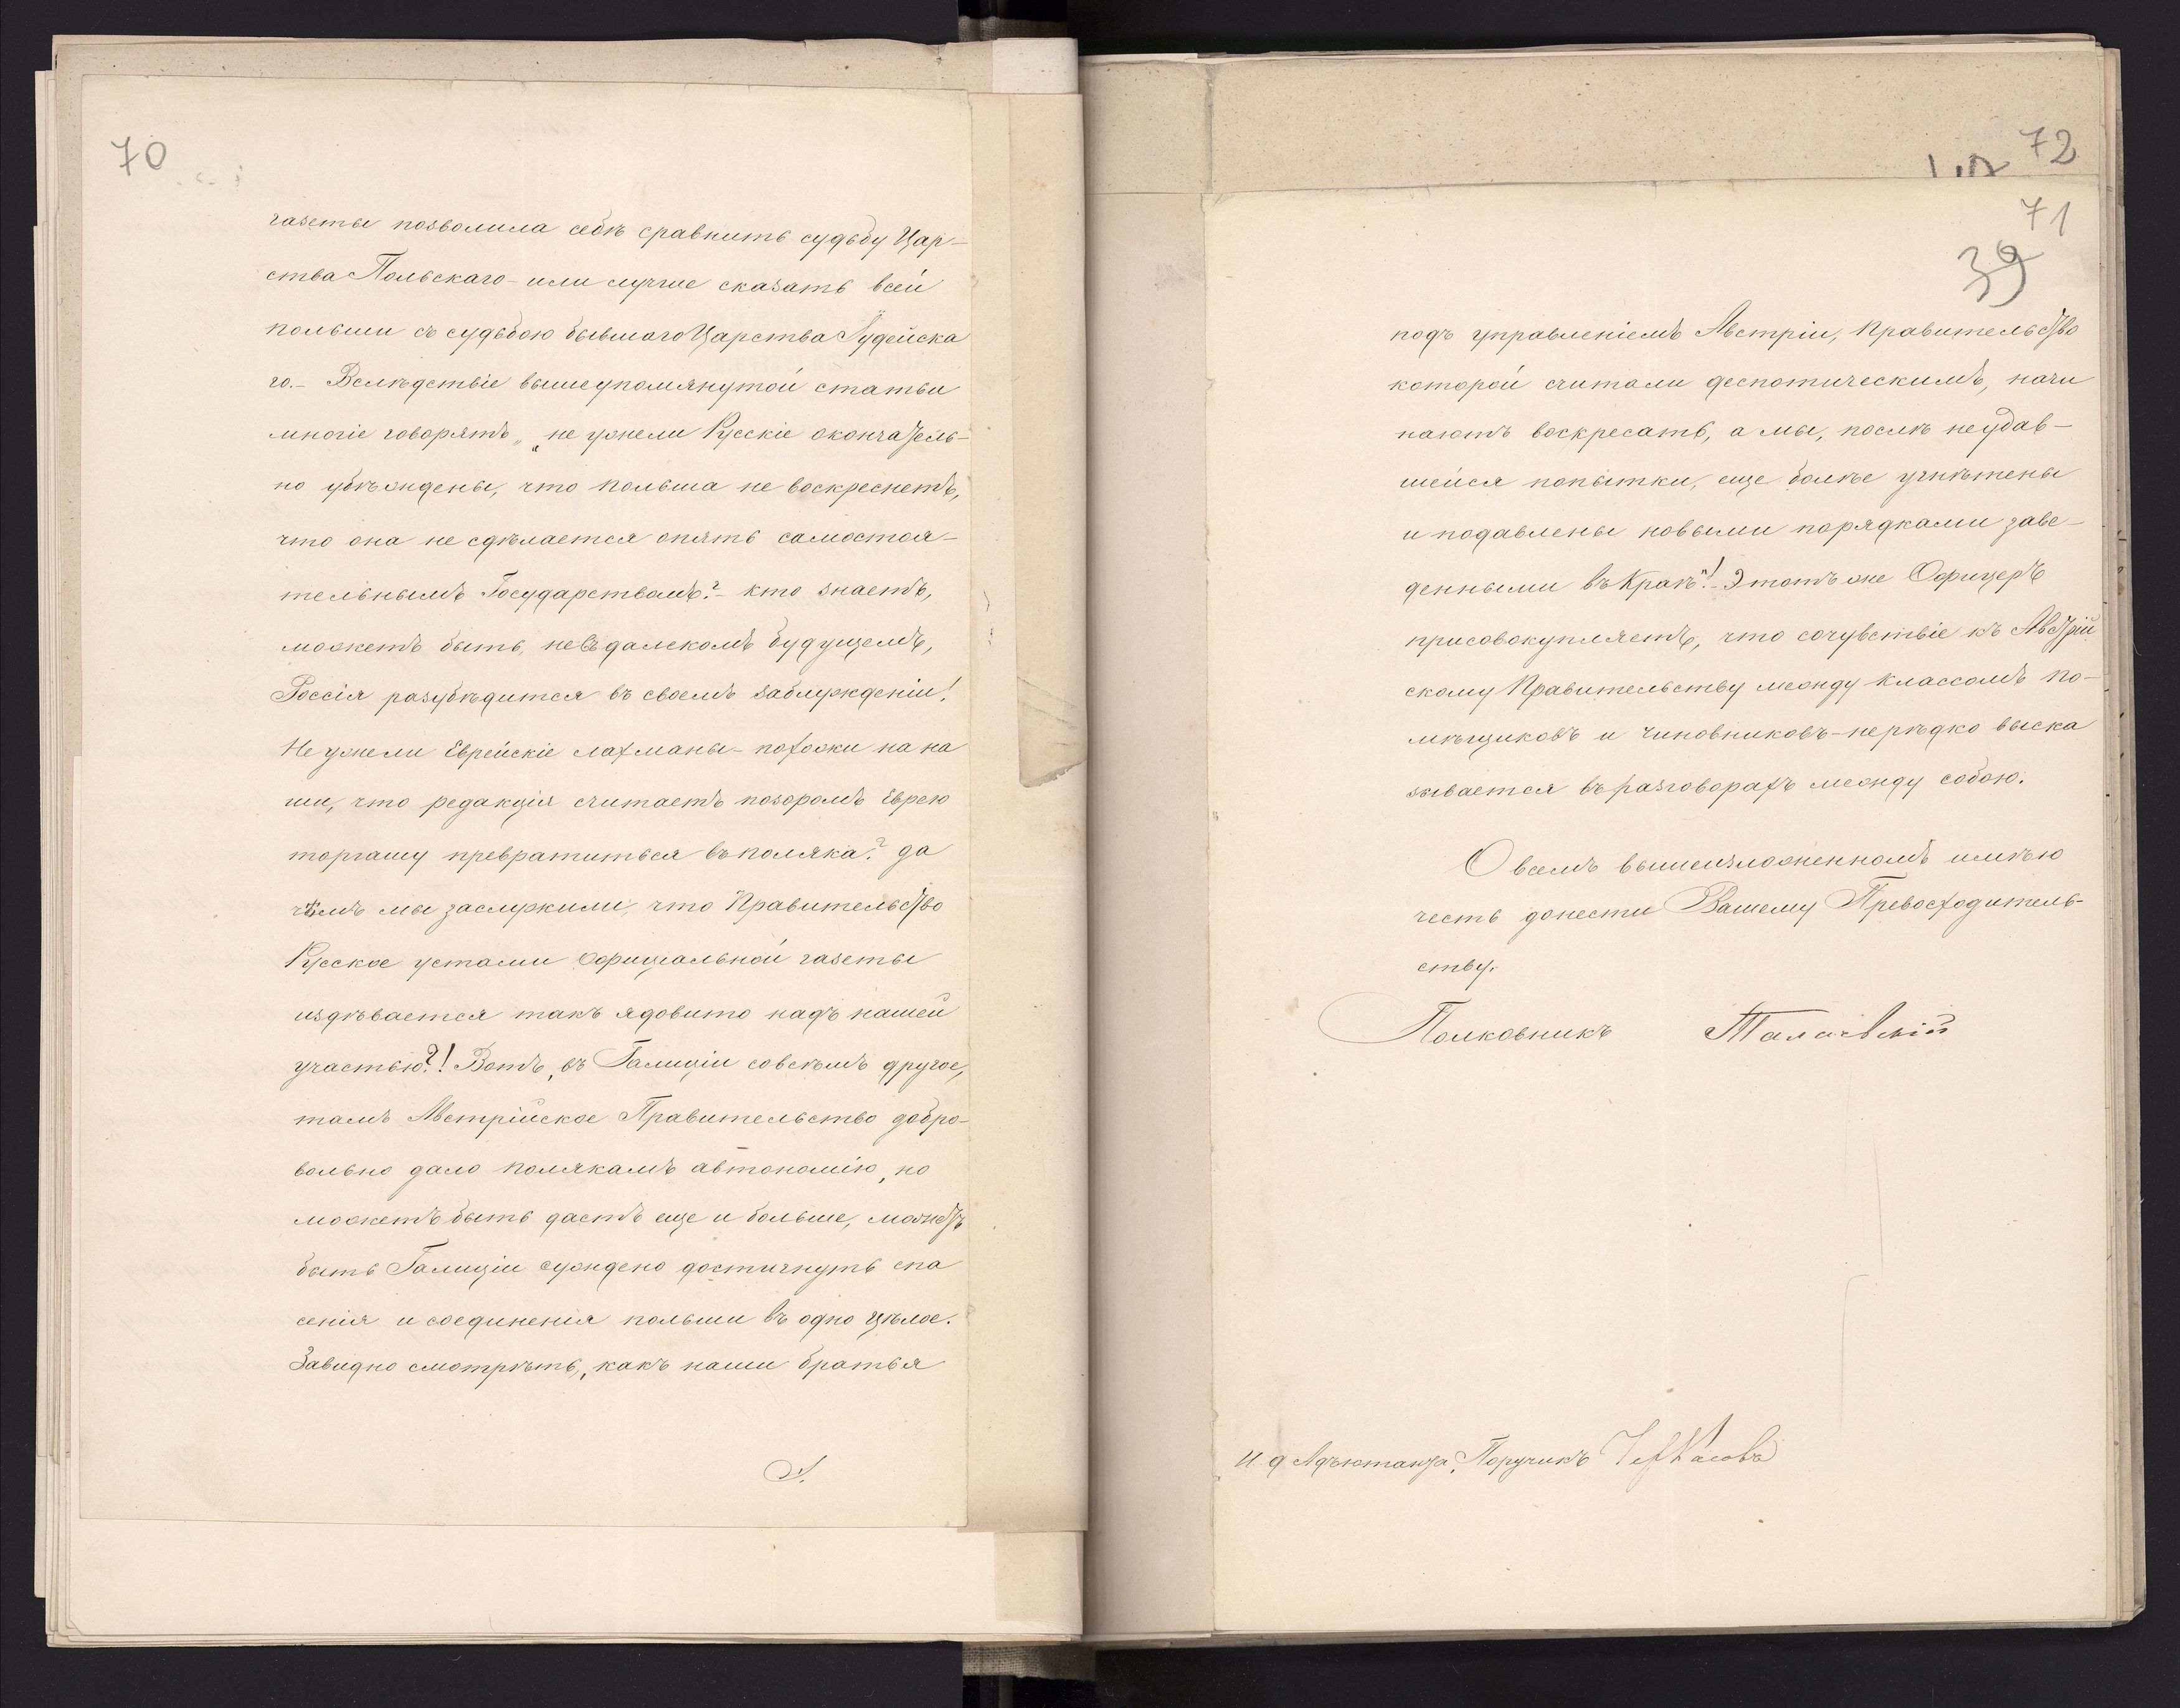 70
газеты позволила себѣ сравнить судьбу Цар-
ства Польскаго - или лучше сказать всей
польши съ судьбою бывшаго Царства Іудейска
го. - Вслѣдствіе вышеупомянутой статьи
многіе говорятъ „не ужели Русскіе окончатель-
но убѣждены, что польша не воскреснетъ,
что она не сдѣлается опять самостоя-
тельнымъ Государствомъ? - кто знаетъ,
можетъ быть, не въ далекомъ будущемъ,
Россія разубѣдится въ своемъ заблужденіи!
Не ужели Еврейскіе лахманы - похожи на на
ши, что редакція считаетъ позоромъ Еврею
торгашу превратиться въ поляка? да
чѣмъ мы заслужили, что Правительство
Русское устами Оффиціальной газеты
издѣвается такъ ядовито надъ нашей
участью?! Вотъ, въ Галиціи совсѣмъ другое,
тамъ Австрійское Правительство добро-
вольно дало полякамъ автономію, но
можетъ быть дастъ еще и больше, можетъ
быть Галиціи суждено достигнуть спа
сенія и соединенія польши въ одно цѣлое.
Завидно смотрѣть, какъ наши братья
72
71
39
подъ управленіемъ Австріи, Правительство
которой считали деспотическимъ, начи
наютъ воскресать, а мы, послѣ неудав-
шейся попытки, еще болѣе угнѣтены
и подавлены новыми порядками заве-
денными въ Краѣ"! - Этотъ же Офицеръ
присовокупляетъ, что сочувствіе къ Австрій
скому Правительству между классомъ по-
мѣщиковъ и чиновниковъ - нерѣдко выска
зывается въ разговорахъ между собою.
О всемъ вышеизложенномъ имѣю
честь донести Вашему Превосходитель-
ству.
Полковникъ
И. д Адъютанта, Поручикъ